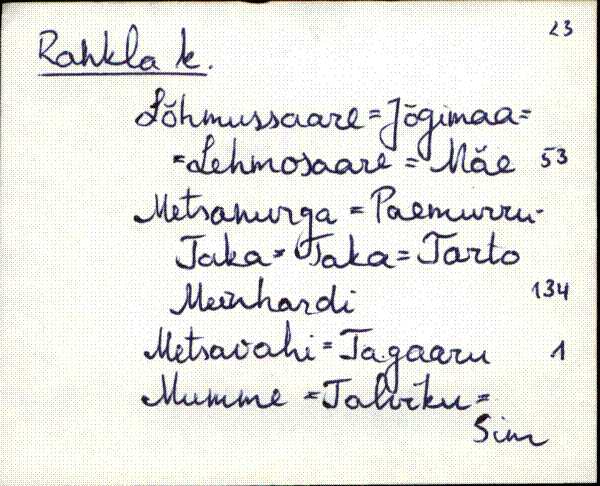 23
Rahkla k.
Lõhmussaare = Jõgimaa =
= Lehmosaare = Mäe 53
Metsanurga = Paemurru-
Taka = Taka = Tarto
Meinhardi 134
Metsavahi = Tagaaru 1
Mumme = Talviku =
Sim